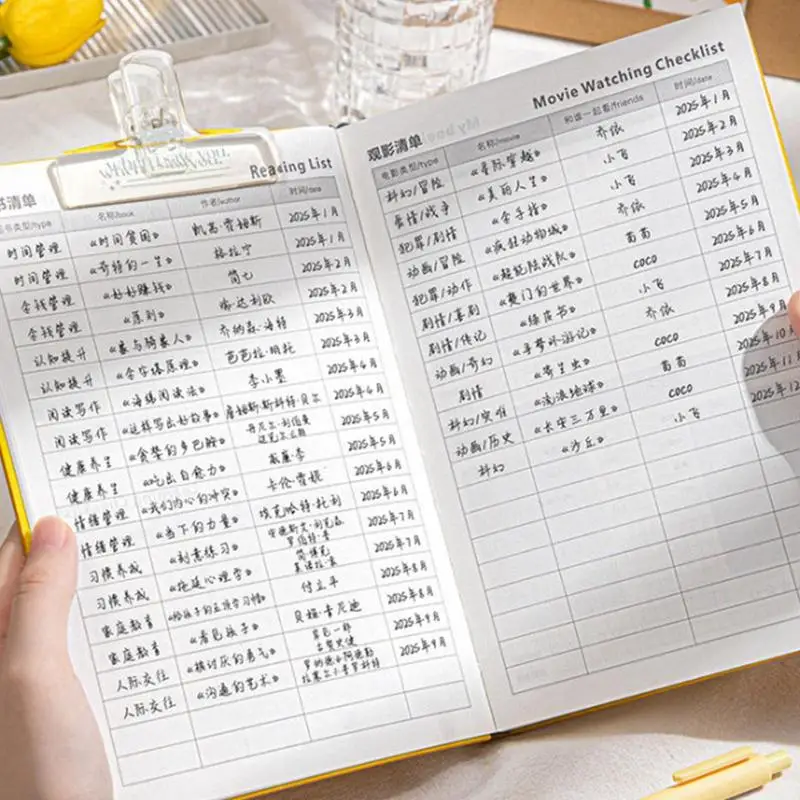 书清单 Reading List
书类型/type 名称/book 作者/author 时间/date
时间管理 《时间贫困》 凯茜·霍姆斯 2025年1月
时间管理 《奇特的一生》 格拉宁 2025年1月
金钱管理 《好好赚钱》 简七 2025年2月
金钱管理 《原则》 瑞·达利欧 2025年2月
认知提升 《象与骑象人》 乔纳森·海特 2025年3月
认知提升 《金字塔原理》 芭芭拉·明托 2025年3月
阅读写作 《海绵阅读法》 李小墨 2025年4月
阅读写作 《这样写出好故事》 詹姆斯·斯科特·贝尔 2025年4月
健康养生 《贪婪的多巴胺》 丹尼尔·利伯曼 2025年5月
健康养生 《吃出自愈力》 威廉·李 2025年5月
情绪管理 《我们内心的冲突》 卡伦·霍妮 2025年6月
情绪管理 《当下的力量》 埃克哈特·托利 2025年6月
习惯养成 《刻意练习》 2025年7月
习惯养成 《拖延心理学》 简·博克 莱诺拉·袁 2025年7月
家庭教育 付立平 2025年8月
家庭教育 《看见孩子》 贝姬·肯尼迪 2025年8月
人际交往 《被讨厌的勇气》 岸见一郎 古贺史健 2025年9月
人际交往 《沟通的艺术》 2025年9月
观影清单 Movie Watching Checklist
电影类型/type 名称/movie 和谁一起看/friends 时间/date
科幻/冒险 《星际穿越》 乔依 2025年1月
爱情/战争 《美丽人生》 小飞 2025年2月
犯罪/剧情 《金手指》 小飞 2025年3月
动画/冒险 《疯狂动物城》 乔依 2025年4月
犯罪/动作 《超能陆战队》 苗苗 2025年5月
剧情/喜剧 《楚门的世界》 coco 2025年6月
剧情/传记 《绿皮书》 小飞 2025年7月
动画/奇幻 《寻梦环游记》 乔依 2025年8月
剧情 《寄生虫》 coco 2025年9月
科幻/灾难 《流浪地球》 苗苗 2025年10月
动画/历史 《长安三万里》 coco 2025年11月
科幻 《沙丘》 小飞 2025年12